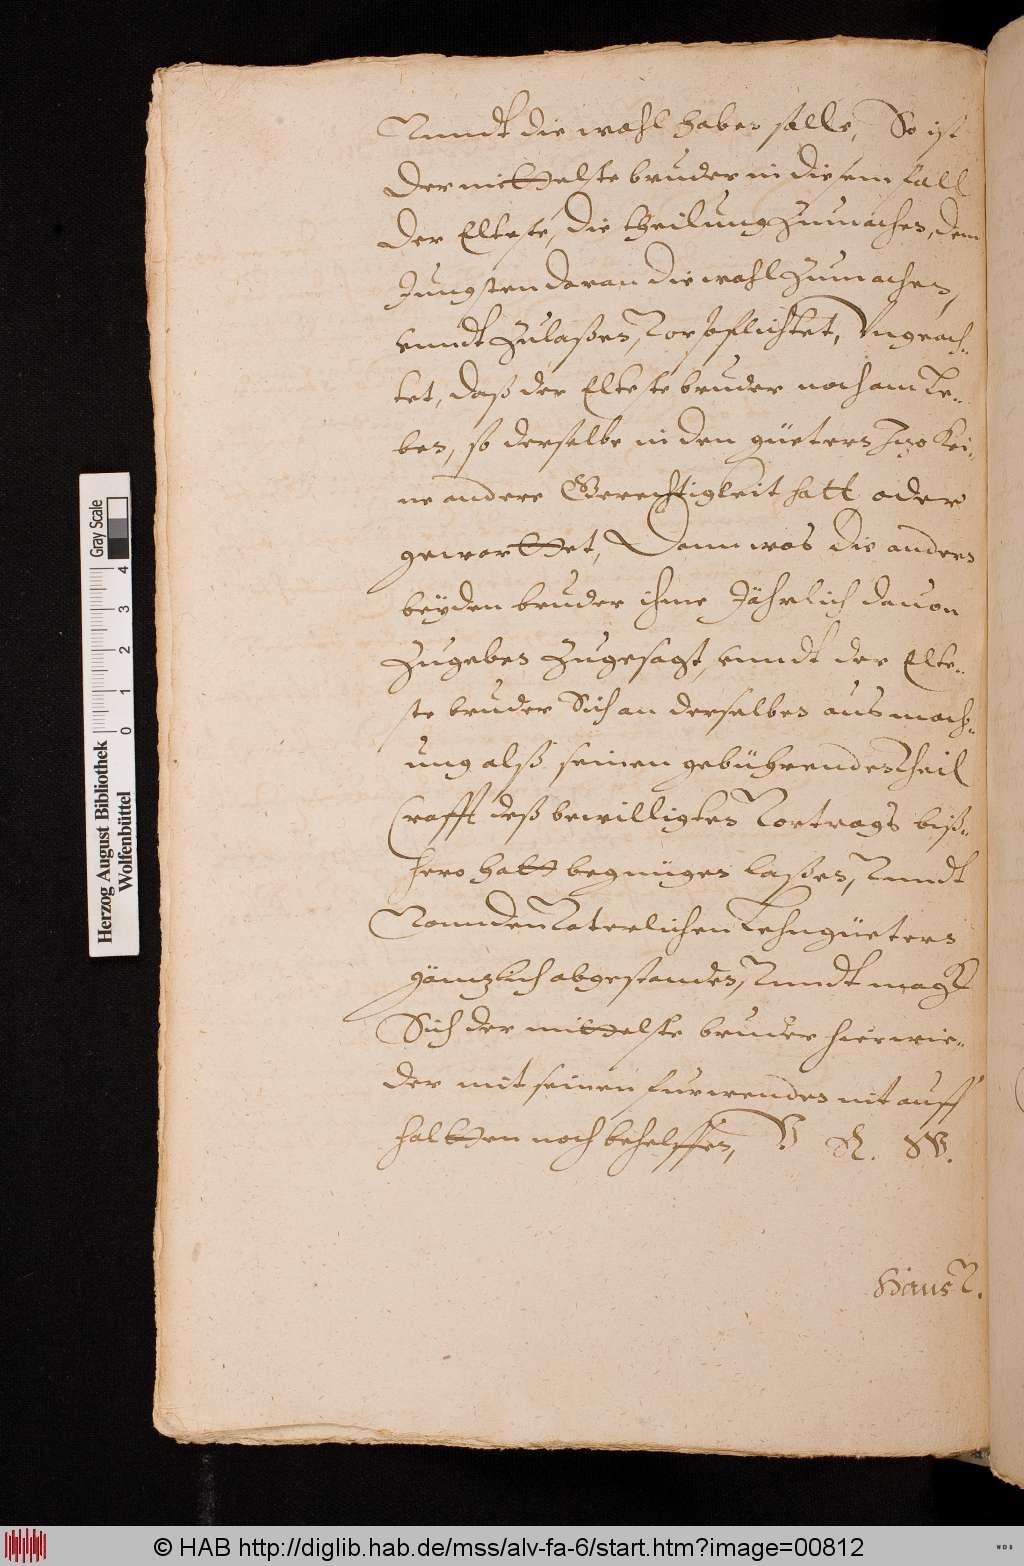 Vnndt die wahl haben solle, So ist
der mittelste bruder in diesem fall
der Elteste, die theilung Zumachen, dem
Jungsten daran die wahl Zumachen,
vnndt Zulaßen, Vorpflichtet, Vngeach-
tet, daß der Elteste bruder noch am Le-
ben, so derselbe in den güetern Itzo kei-
ne andere Gerechtigkeit hatt oder
gewarttet, Dann was die andern
beÿden bruder ihme Jährlich dauon
Zugeben Zugesagt, vnndt der Elte-
ste bruder Sich an derselben aus mach-
ung alß seinen gebührenden Theil
Crafft deß bewilligten Vortrags biß-
hero hatt begnügen laßen, Vnndt
Vonn den Vaterlichen Lehngüetern
gäntzlich abgestanden, Vnndt magk
Sich der mittelste bruder hierwie-
der mit seinen furwenden nit auff
haltten noch behelffen, V. R. W.
Hans V.
Herzog August Bibliothek
Wolfenbüttel
0 1 2 3 4
Gray Scale
© HAB http://diglib.hab.de/mss/alv-fa-6/start.htm?image=00812
WDB